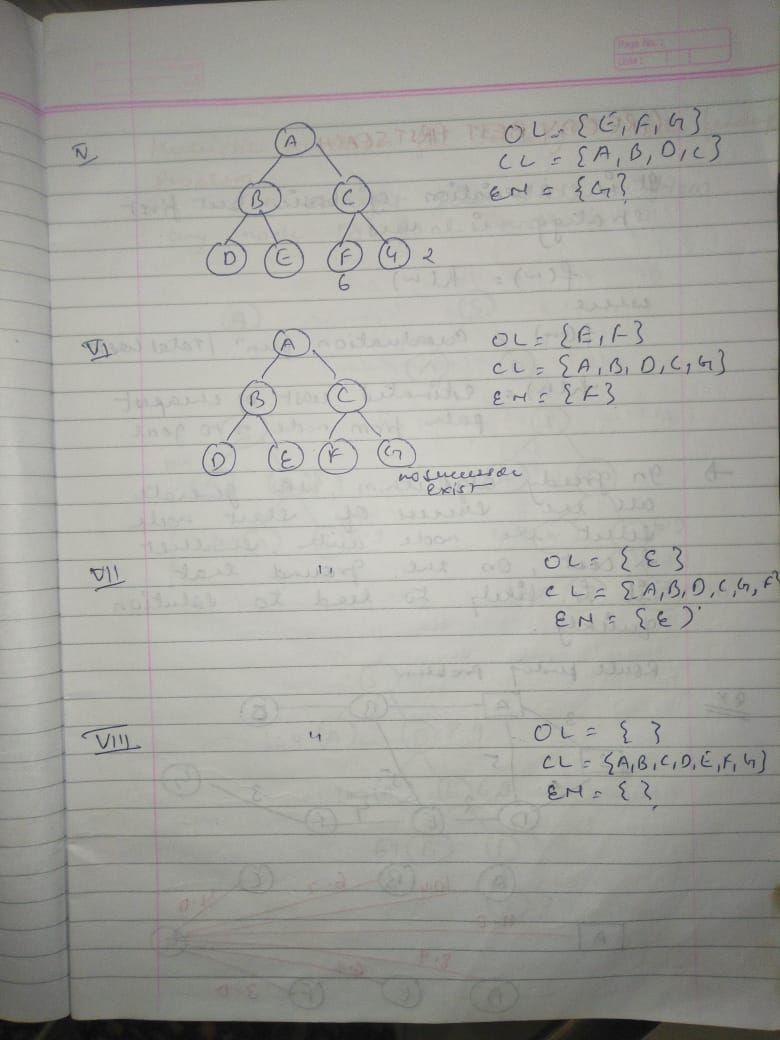 Page No.:
Date:
V
A
B
C
D
E
F
G
2
6
OL = {E, F, G}
CL = {A, B, D, C}
EN = {G}
VI
A
B
C
D
E
F
G
no successor
exist
OL = {E, F}
CL = {A, B, D, C, G}
EN = {F}
VII
"
OL = {E}
CL = {A, B, D, C, G, F}
EN = {E}
VIII
"
OL = { }
CL = {A, B, C, D, E, F, G}
EN = { }